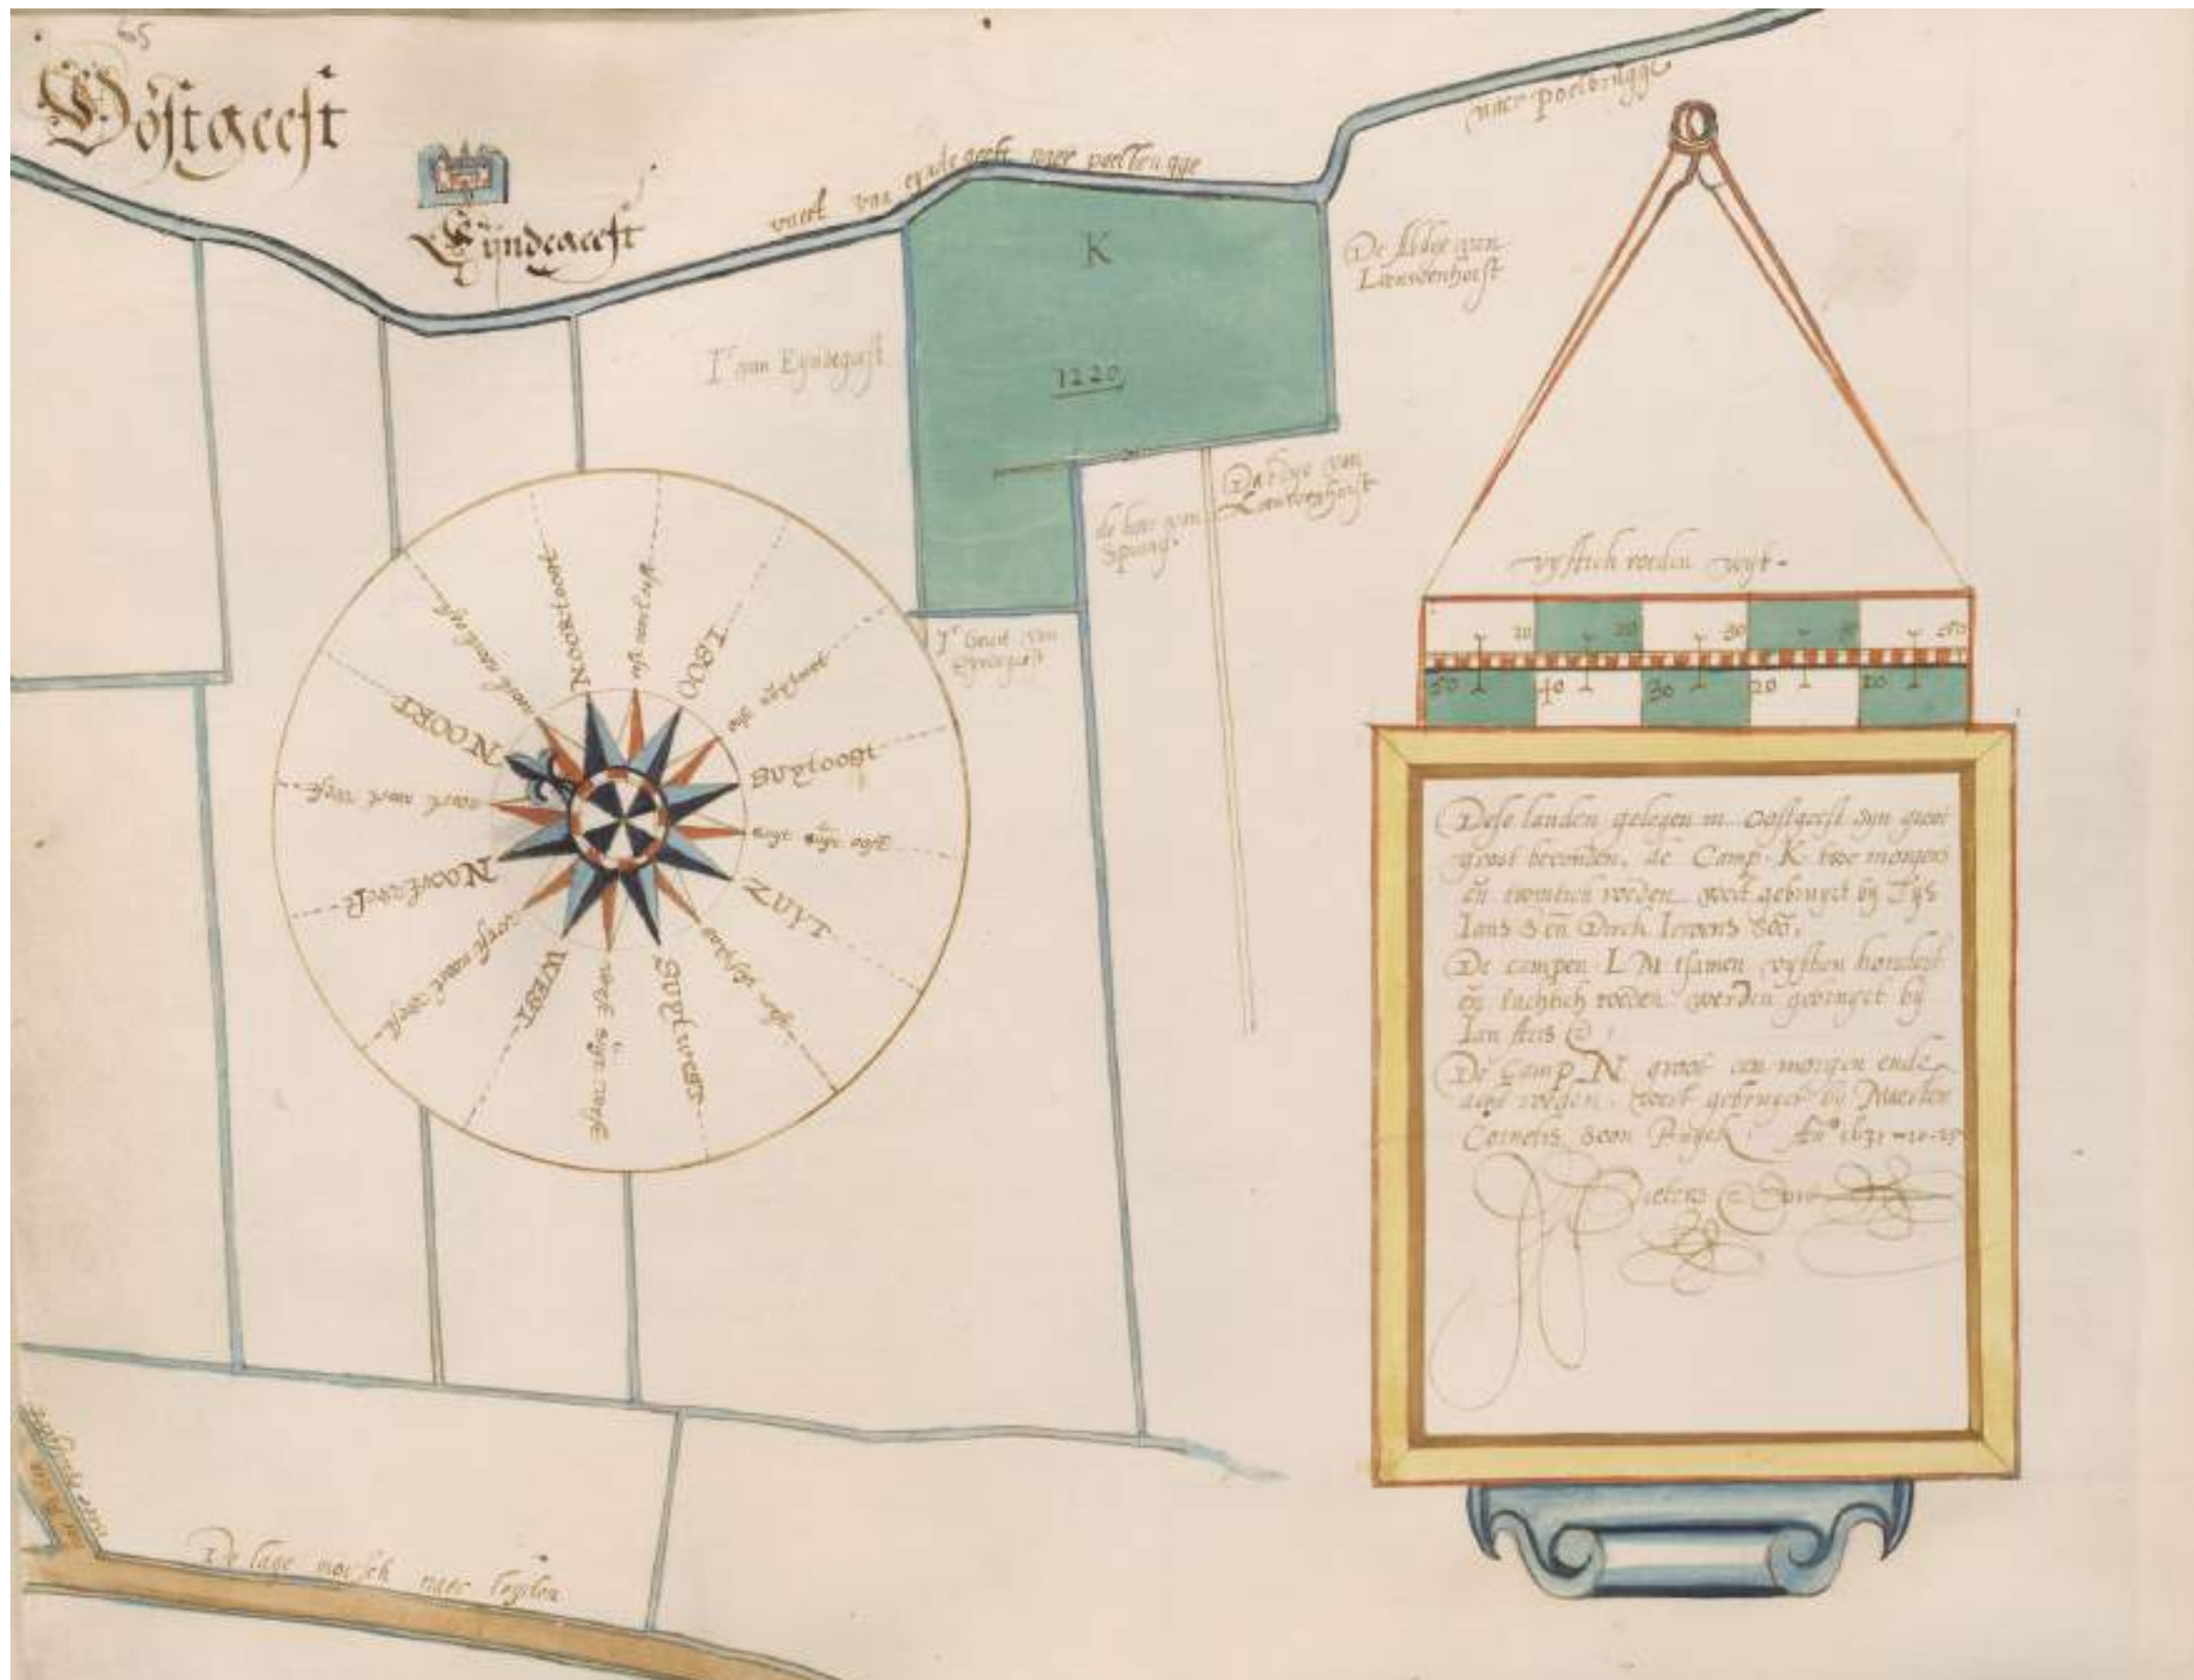 65
Oostgeest
Eyndegeest
vaert van eyndegeest naer poelbrugge
naer poelbrugge
K
1220
De Abdye van
Leeuwenhorst
Jr van Eyndegeest
De abdye van
Leeuwenhorst
de heer van
Spuing.
Jr van
Eyndegeest
NOORT
noort noort oost
NOORTOOST
OOST
ZUYTOOST
zuyt zuyt oost
ZUYT
ZUYTWEST
west zuyt west
WEST
west noort west
NOORTWEST
noort noort west
vyftich roeden wyt.
10 20 30 40 50
50 40 30 20 10
Dese landen gelegen in Oostgeest syn groot
groot bevonden, de Camp K twe morgen
en twintich roeden wort gebruyct by Tys
Jans S en Dirck Jeroens soon.
De campen L M tsamen vyfthien hondert
en tachtich roeden werden gebruyct by
Jan
De Camp N groot een morgen ende
acht roeden, wort gebruyct by Maerten
Cornelis soon An° 1631-10-25
Pieters Dou
De lage morsch naer leyden